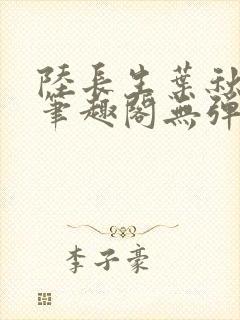 陸長生葉秋
筆趣閣無彈
李子豪